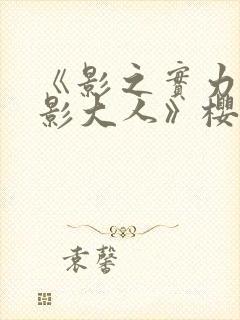 《影之實力
影大人》櫻
袁馨